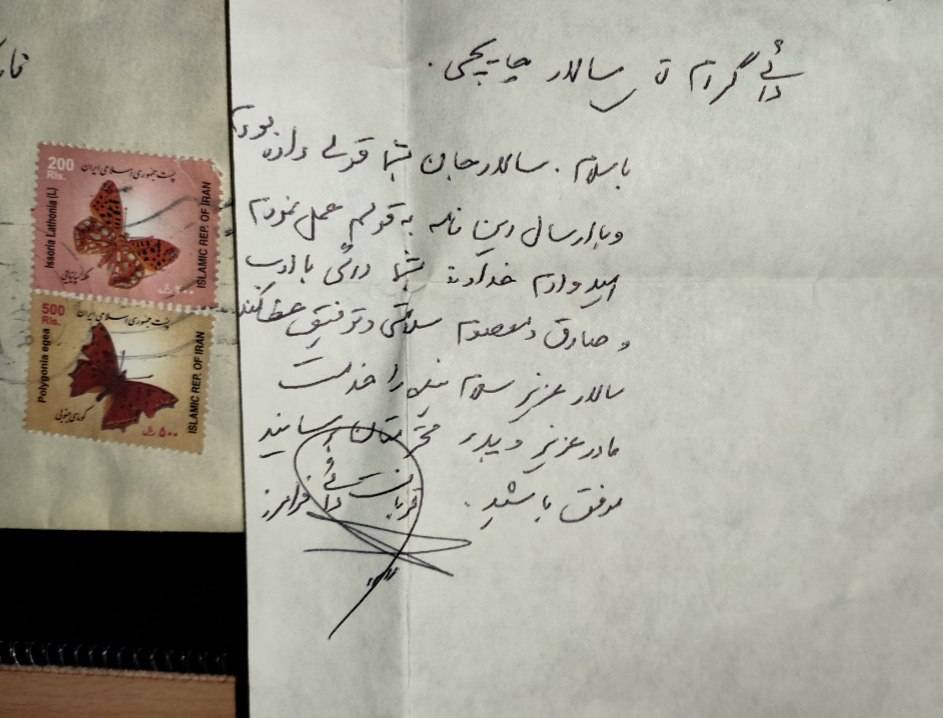 دائی گرام آقا سالار چاپچی.
با سلام. سالار جان بشما قولی داده بودم
و با ارسال این نامه به قولم عمل نمودم
امیدوارم خداوند بشما دائی با ادب
و صادق و معصوم سلامتی و توفیق عطا کند
سالار عزیز سلام بنده را خدمت
مادر عزیز و پدر محترمتان برسانید
موفق باشید. قربانت دائی فرامرز
200
Rls.
پست جمهوری اسلامی ایران
Issoria Lathonia (L)
ISLAMIC REP. OF IRAN
۲۰۰ ریال
500
Rls.
پست جمهوری اسلامی ایران
Polygonia egea
ISLAMIC REP. OF IRAN
۵۰۰ ریال